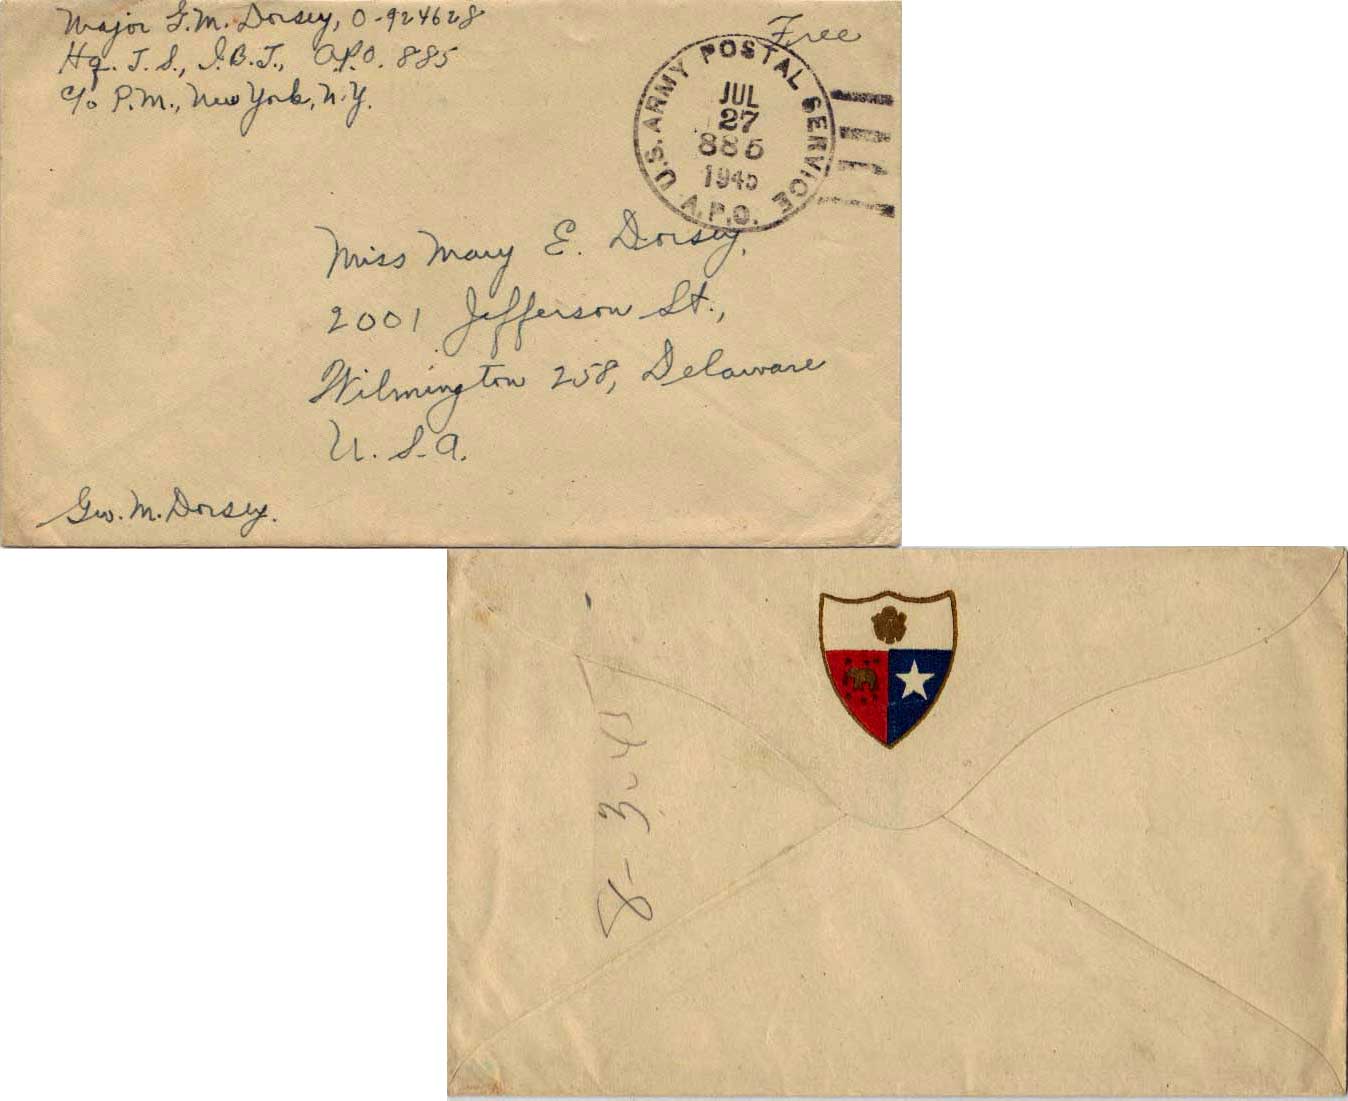 Major G.M. Dorsey, O-924628
Hq. I. S., I.B.T., A.P.O. 885
c/o P.M., New York, N.Y.
Free
U.S. ARMY POSTAL SERVICE
JUL
27
885
1945
A.P.O.
Miss Mary E. Dorsey,
2001 Jefferson St.,
Wilmington 258, Delaware
U.S.A.
Geo. M. Dorsey.
8-3-45